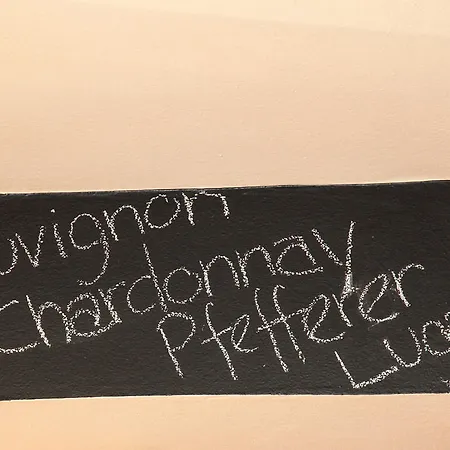 uvignon
Chardonnay
Pfefferer
Lu